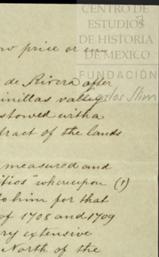 CENTRO DE
ESTUDIOS
DE HISTORIA
DE MEXICO
FUNDACIÓN
Carlos Slim
low price or
de Rivera after
inillas valley
stowed with a
tract of the lands
measured and
itios" whereupon (1)
to him for that
of 1708 and 1709
ry extensive
North of the